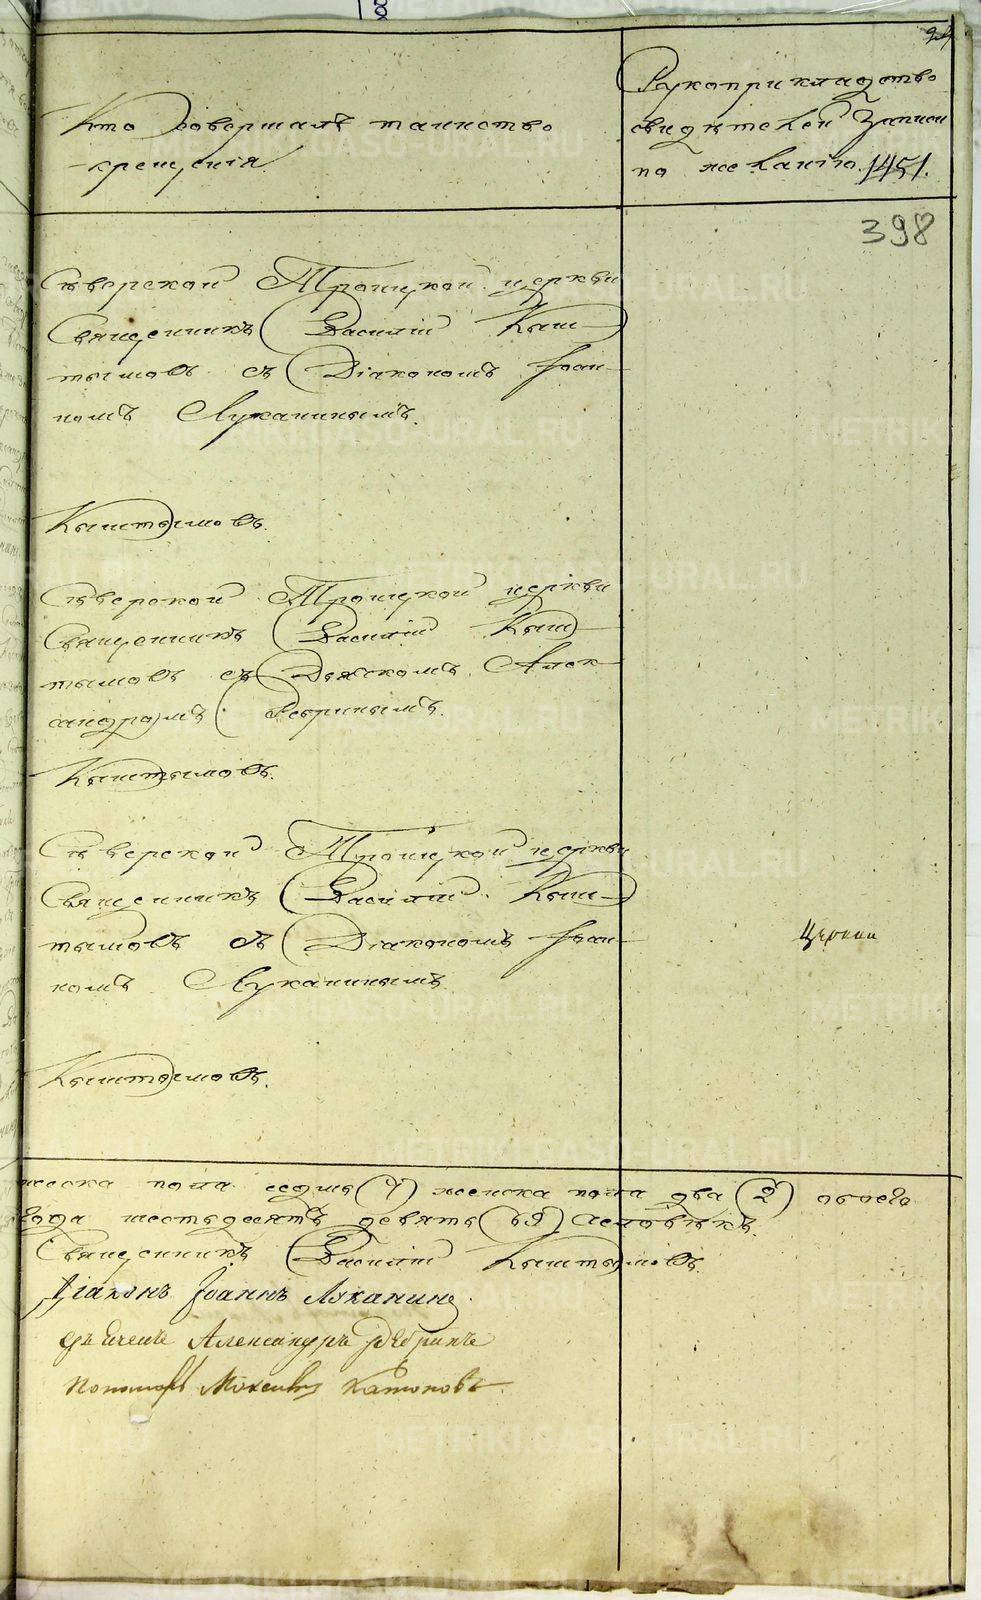 24
Кто совершалъ таинство
крещенія.
Рукоприкладство
свидѣтелей записи
по желанію. 1451.
398
Сѣверской Троицкой церкви
Священникъ Василій Кыш-
тымовъ съ Діакономъ Іоан-
номъ Луканинымъ.
Кыштымовъ.
Сѣверской Троицкой церкви
Священникъ Василій Кыш-
тымовъ съ Дьячкомъ Алек-
сандромъ Ребринымъ.
Кыштымовъ.
Сѣверской Троицкой церкви
Священникъ Василій Кыш-
тымовъ съ Діакономъ Іоан-
номъ Луканинымъ
Церкви
Кыштымовъ.
мужеска пола седмь (7) женска пола два (2) обоего
рода шестьдесятъ девять (69) человѣкъ.
Священникъ Василій Кыштымовъ.
Діаконъ Іоаннъ Луканинъ.
дьячекъ Александръ Ребринъ
пономарь Катоновъ
METRIKI.GASO-URAL.RU